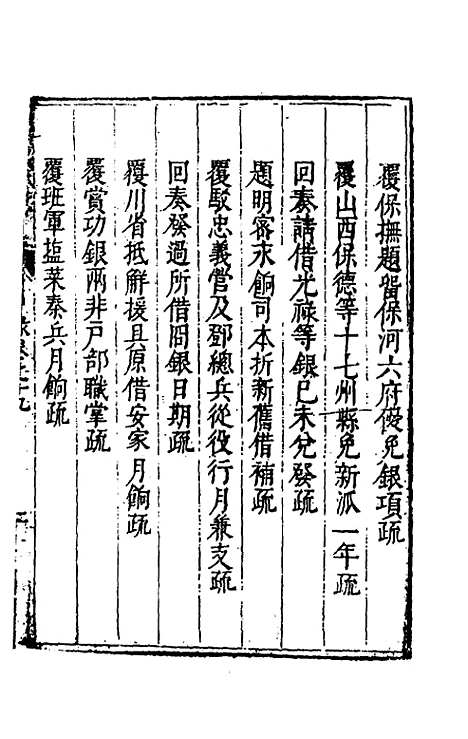 覆保撫題留保河六府優免銀項疏
覆山西保德等十七州縣免新派一年疏
回奏請借光祿等銀已未兌發疏
題明客永餉司本折新舊借補疏
覆駁忠義營及鄧總兵從役行月兼支疏
回奏發過所借冏銀日期疏
覆川省抵解援兵原借安家月餉疏
覆賞功銀兩非戶部職掌疏
覆班軍鹽菜秦兵月餉疏